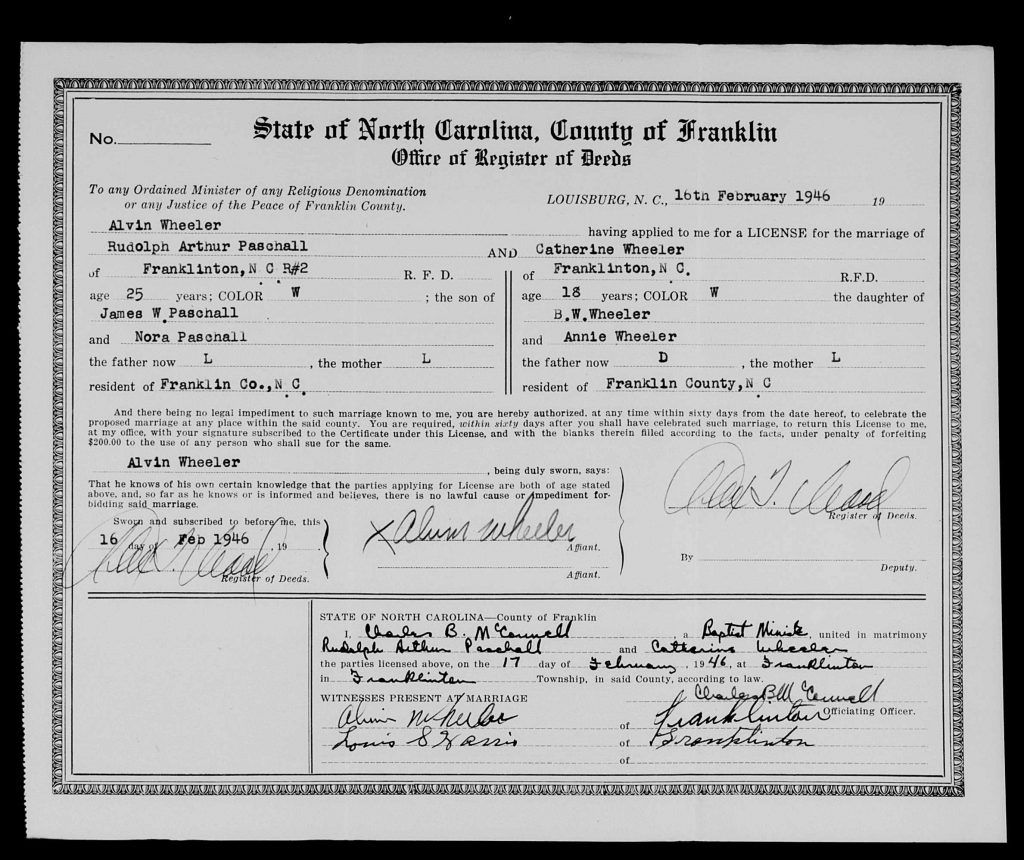 No.
State of North Carolina, County of Franklin
Office of Register of Deeds
To any Ordained Minister of any Religious Denomination
or any Justice of the Peace of Franklin County.
LOUISBURG, N. C., 16th February 1946 19
Alvin Wheeler having applied to me for a LICENSE for the marriage of
Rudolph Arthur Paschall AND Catherine Wheeler
of Franklinton, N C R#2 R. F. D.
age 25 years; COLOR W ; the son of
James W. Paschall
and Nora Paschall
the father now L , the mother L
resident of Franklin Co., N C.
of Franklinton, N C. R.F.D.
age 18 years; COLOR W the daughter of
B.W. Wheeler
and Annie Wheeler
the father now D , the mother L
resident of Franklin County, N C
And there being no legal impediment to such marriage known to me, you are hereby authorized, at any time within sixty days from the date hereof, to celebrate the
proposed marriage at any place within the said county. You are required, within sixty days after you shall have celebrated such marriage, to return this License to me,
at my office, with your signature subscribed to the Certificate under this License, and with the blanks therein filled according to the facts, under penalty of forfeiting
$200.00 to the use of any person who shall sue for the same.
Alvin Wheeler , being duly sworn, says:
That he knows of his own certain knowledge that the parties applying for License are both of age stated
above, and, so far as he knows or is informed and believes, there is no lawful cause or impediment for-
bidding said marriage.
Sworn and subscribed to before me, this
16 day of Feb 1946 , 19
Register of Deeds.
X Alvin Wheeler
Affiant.
Affiant.
Register of Deeds.
By
Deputy.
STATE OF NORTH CAROLINA—County of Franklin
I, Charles B. McConnell , a Baptist Minister, united in matrimony
Rudolph Arthur Paschall and Catherine Wheeler
the parties licensed above, on the 17 day of February , 1946, at Franklinton
in Franklinton Township, in said County, according to law.
Charles B McConnell
Officiating Officer.
WITNESSES PRESENT AT MARRIAGE
Alvin Wheeler of Franklinton
Louis S Harris of Franklinton
of